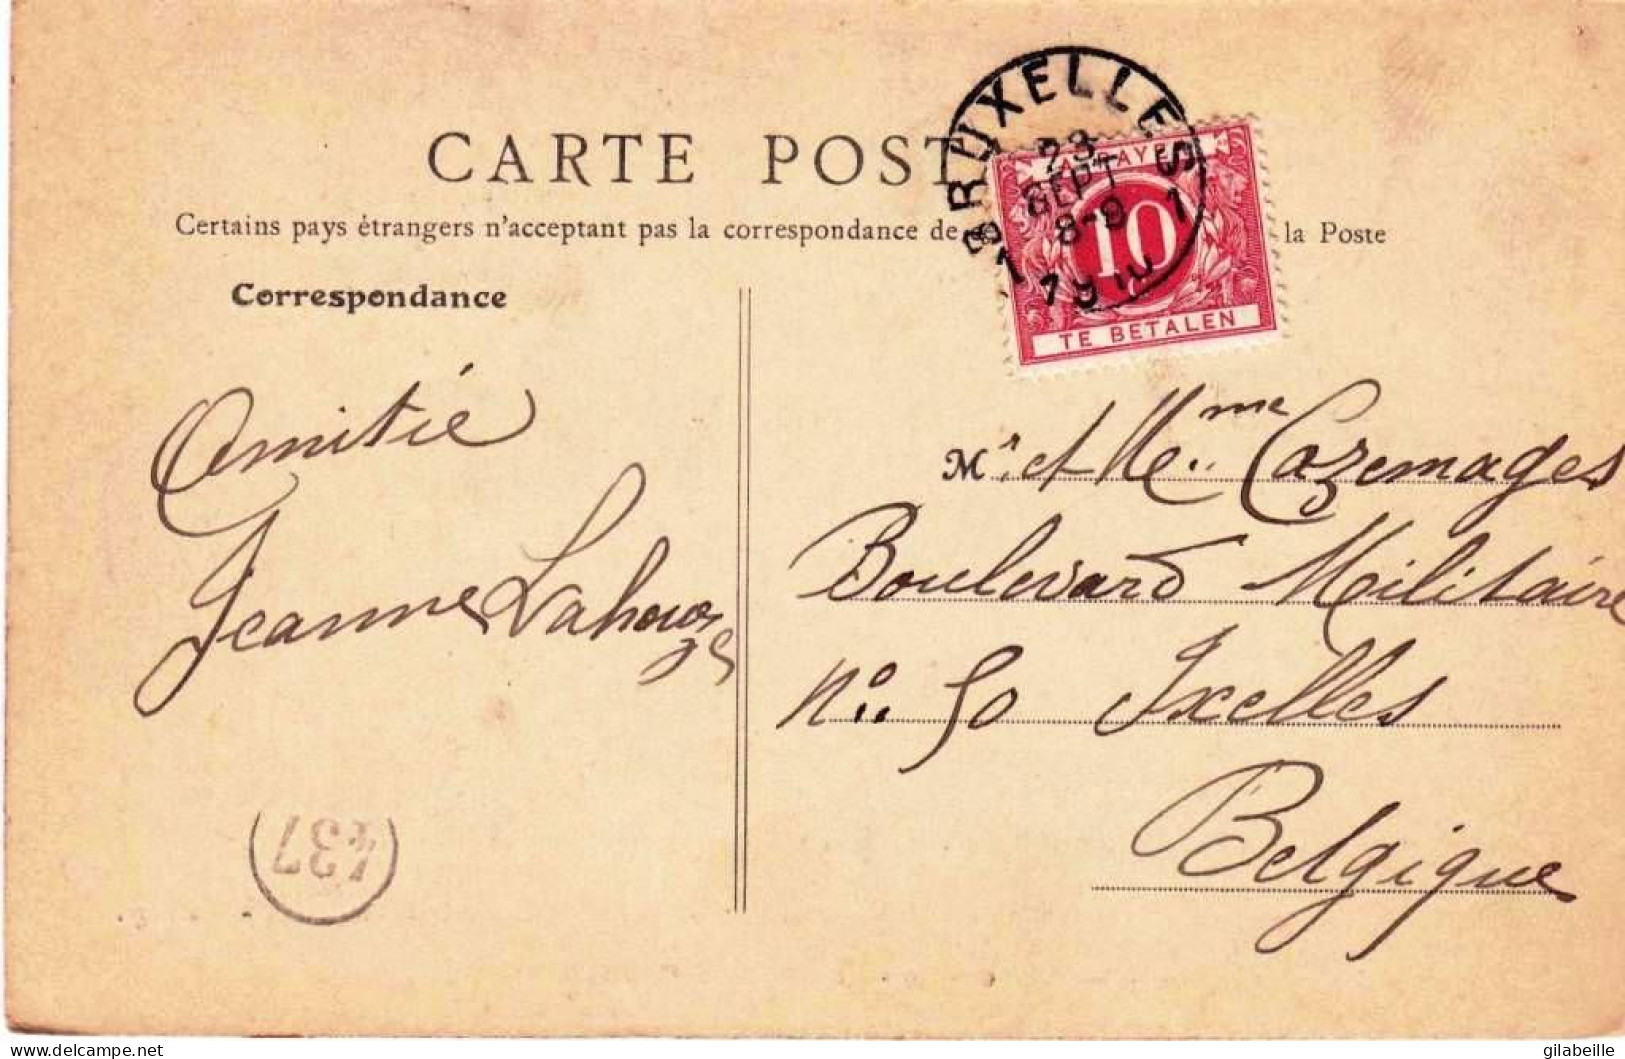 CARTE POST
Certains pays étrangers n'acceptant pas la correspondance de la Poste
BRUXELLES
1 1
23
SEPT
8-9
1910
A PAYER
10
TE BETALEN
Correspondance
Amitié
Jeanne
437
Mr et Mme Cazemages
Boulevard Militaire
No 50 Ixelles
Belgique
delcampe.net
gilabeille